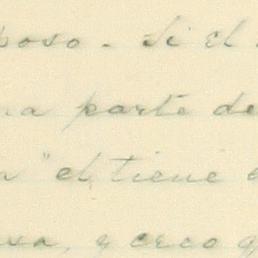 poso. Si el
na parte de
" el tiene
sa, y creo q